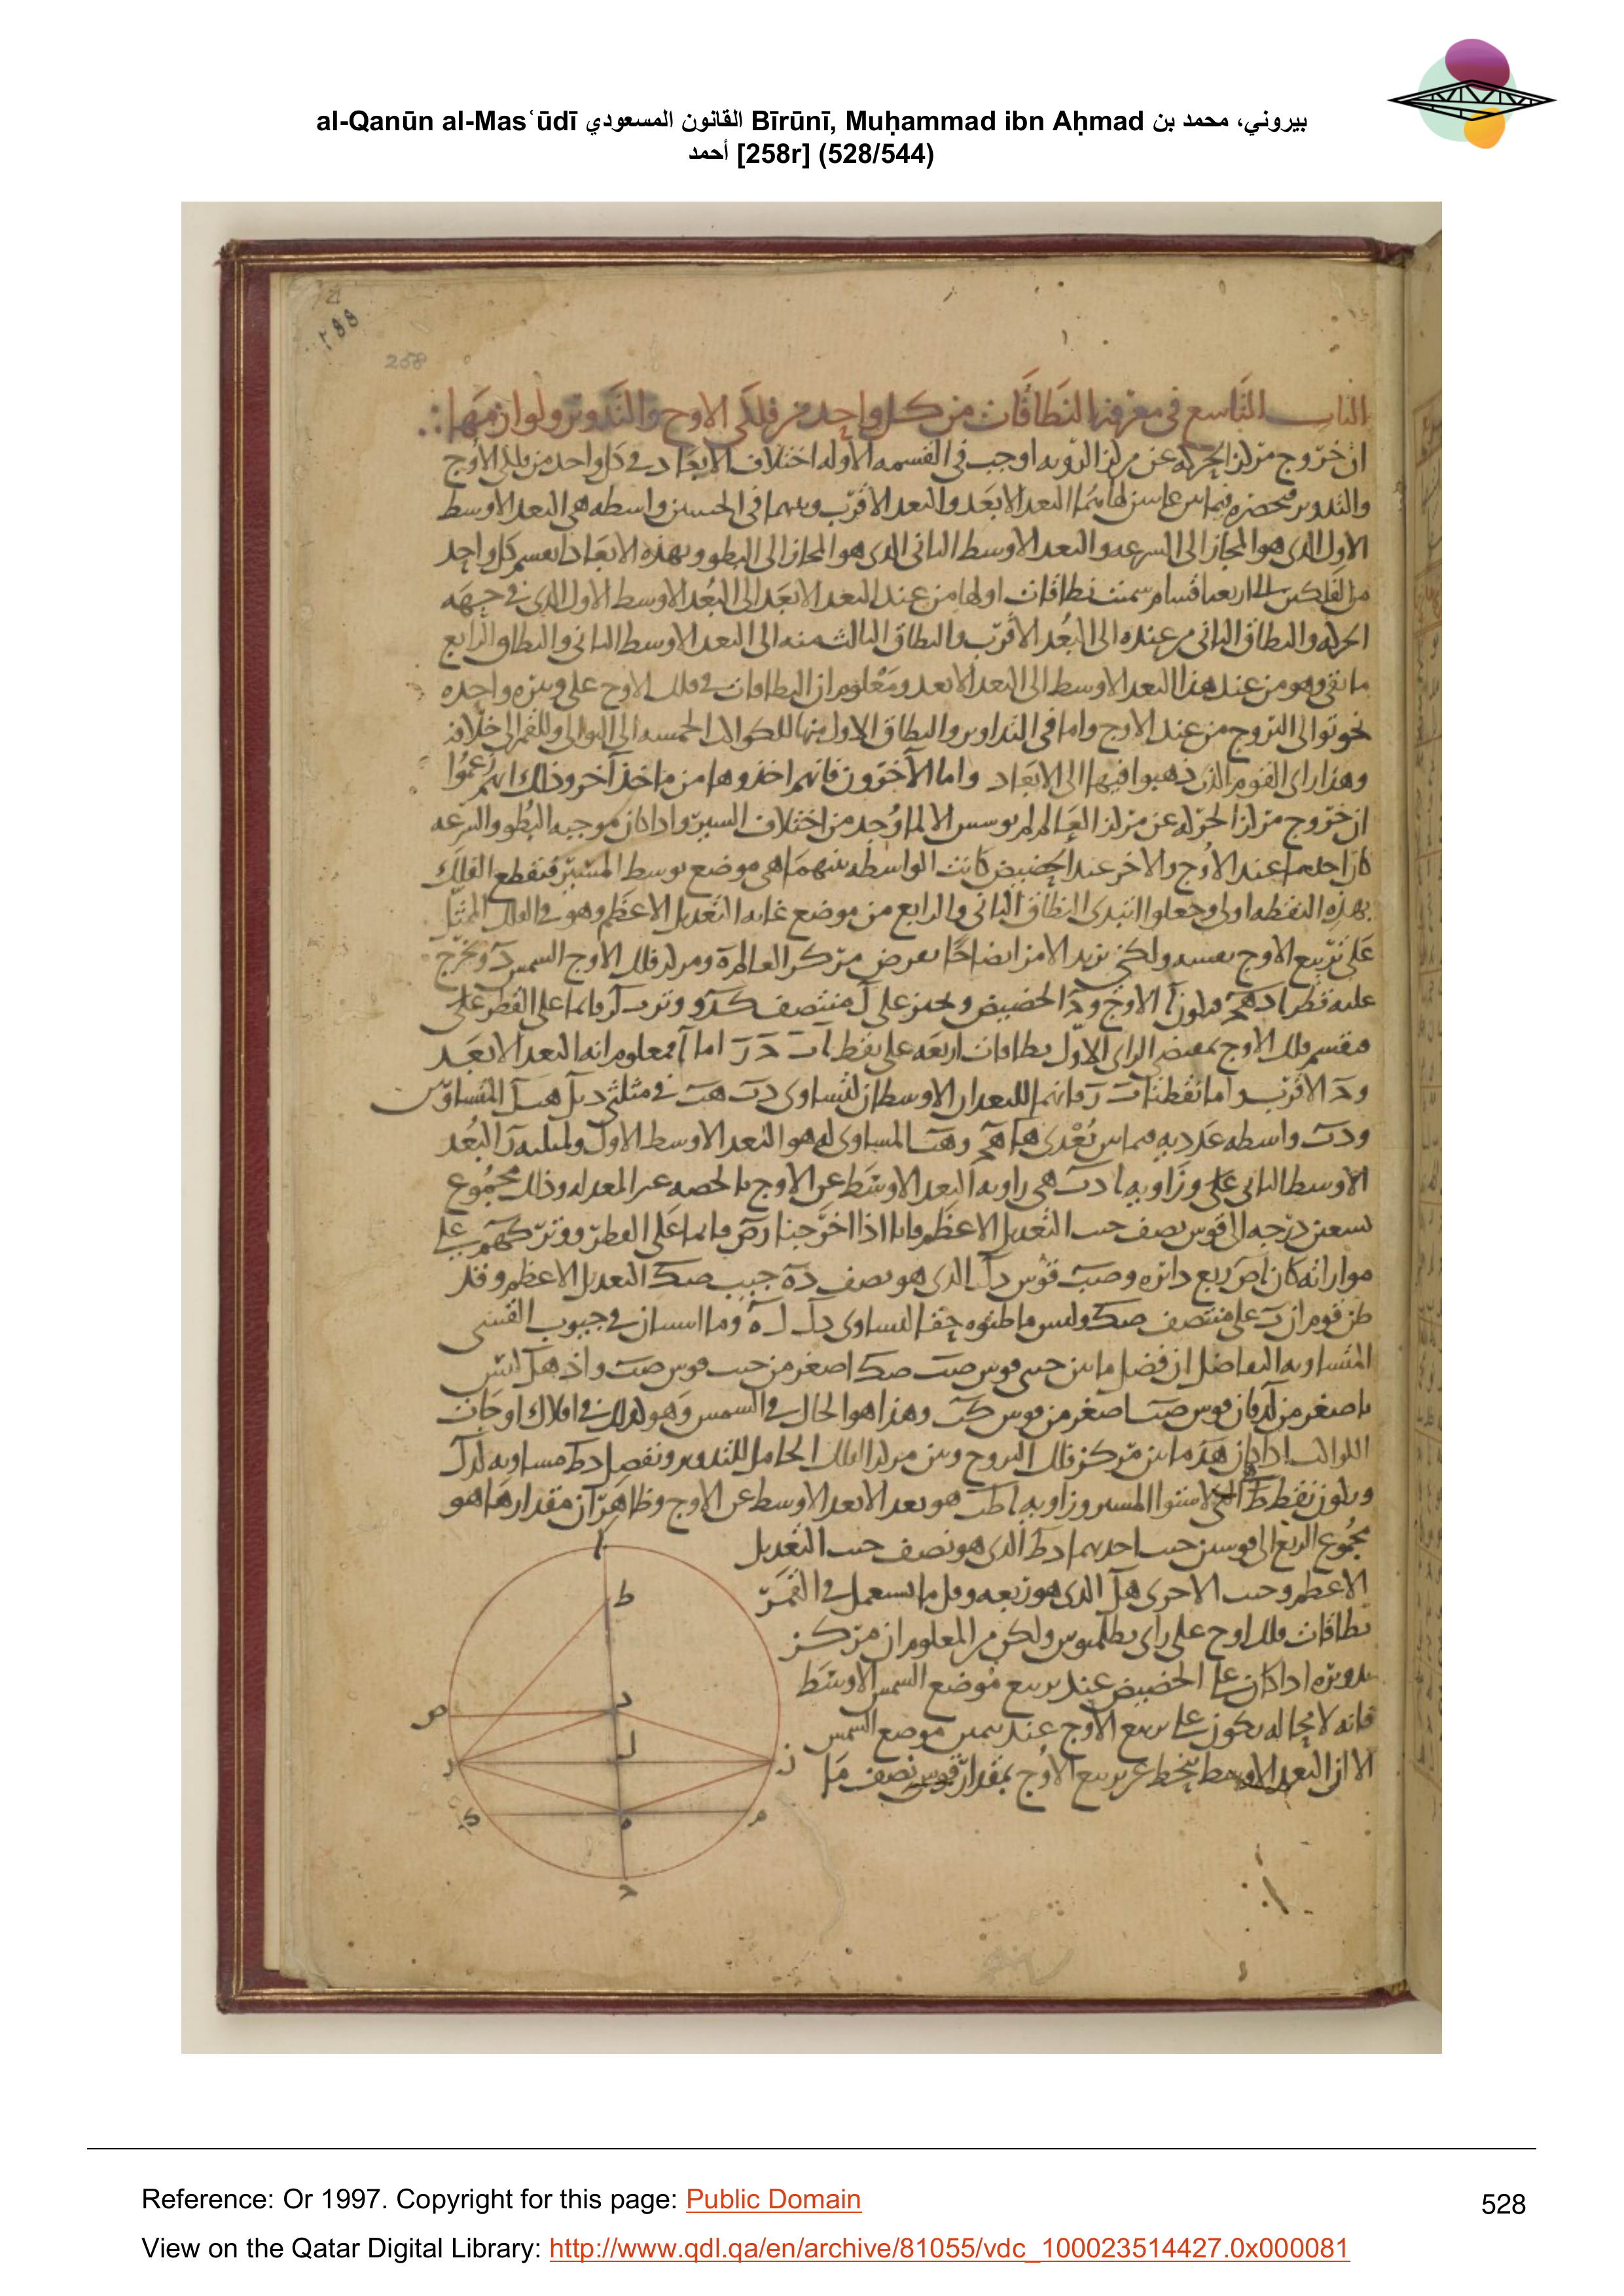 al-Qanūn al-Masʿūdī القانون المسعودي Bīrūnī, Muḥammad ibn Aḥmad بيروني، محمد بن
أحمد [258r] (528/544)
٢٥٨
258
الباب التاسع في معرفة النطاقات من كل واحد من فلكي الاوج والتدوير ولوازمها
ان خروج مركز الحركه عن مركز الرؤيه اوجب في القسمه الاوله اختلاف الابعاد في كل واحد من فلكي الاوج
والتدوير البعد الابعد والبعد الاقرب واسطه هي البعد الاوسط
الاول الذي هو المجاز الى السرعه والبعد الاوسط الثاني الذي هو المجاز الى البطو وبهذه الابعاد كل واحد
من الفلكين الى اربعه اقسام سميت نطاقات اولها من عند البعد الابعد الى البعد الاوسط الاول الذي في جهه
الحركه والنطاق الثاني من عنده الى البعد الاقرب والنطاق الثالث منه الى البعد الاوسط الثاني والنطاق الرابع
ما بقي وهو من عند هذا البعد الاوسط الى البعد الابعد ومعلوم ان النطاقات في فلك الاوج على وتيره واحده
نحو توالى البروج من عند الاوج واما في التداوير والنطاق الاول منها للكواكب الخمسه الى التوالى وللقمر الى خلافه
وهذا راى القوم الذين ذهبوا فيها الى الابعاد واما الآخرون فانهم اخذوها من ماخذ آخر وذلك انهم زعموا
ان خروج مركز الحركه عن مركز العالم لم الا لما وجد من اختلاف السير واذا كان موجبه البطو والسرعه
كان احدهما عند الاوج والاخر عند الحضيض كانت الواسطه بينهما هي موضع توسط المسير فتقطع الفلك
بهذه النقطه اولى وجعلوا النطاق الثاني والرابع من موضع غايه التعديل الاعظم وهو في الفلك الممثل
على تربيع الاوج بعينه ولكي نزيد الامر ايضاحا نفرض مركز العالم ه ومركز فلك الاوج الشمس د ونخرج
عليه قطر ا د ه ح فيكون ا الاوج و ح الحضيض على ل منتصف وترب قائما على القطر
فلك الاوج بمقتضى الراى الاول نطاقات اربعه على نقط اما ا فمعلوم انه البعد الابعد
و ح الاقرب واما نقطتا فانهما للبعدان الاوسطان لتساوى د ب ه ب في مثلثى المتساويين
ود ب واسطه عدديه فيما بين بعدى ه ا ه ح و ه ب المساوى له هو البعد الاوسط الاول البعد
الاوسط الثاني وزاويه ا د ب هي زاويه البعد الاوسط عن الاوج بالحصه غير المعدله وذلك مجموع
تسعين درجه الى قوس نصف جيب التعديل الاعظم فانا اذا اخرجنا قائما على القطر ووتر على
موازاته كان ا ص ربع دائره و ص ب قوس د ل الذي هو نصف د ه جيب ص ك التعديل الاعظم وقد
ظن قوم ان ب على منتصف ص ك وليس ما ظنوه حقا لتساوى د ل ل ه في جيوب القسى
المتساويه التفاضل ان فضل ما بين جيبى قوس ص ب ص ك اصغر من جيب قوس ص ب واذ ه ل ليس
باصغر من ل د فان قوس ص ب اصغر من قوس ك ب وهذا هو الحال في الشمس وهو كذلك في افلاك اوجات
الكواكب اذا كان ه د ما بين مركز فلك البروج وبين مركز الفلك الحامل للتدوير ونفصل د ط مساويه
ويكون نقطه ط المسير وزاويه ا ط ب هو بعد الابعد الاوسط عن الاوج وظاهر ان مقدارها هو
مجموع الربع الى قوسين جيب احديهما د ط الذى هو نصف جيب التعديل
الاعظم وجيب الاخرى ه ل الذى هو ربعه وقل ما يستعمل في القمر
نطاقات فلك اوج على راى بطلميوس ولكن من المعلوم ان مركز
تدويره اذا كان على الحضيض عند تربيع موضع الشمس الاوسط
فانه لا محاله يكون على تربيع الاوج عند موضع الشمس
الا ان البعد الاوسط ينحط عن تربيع الاوج بمقدار قوس نصف ما
ا
ط
د
ص
ل
ب
ز
ك
ه
م
ح
Reference: Or 1997. Copyright for this page: Public Domain
528
View on the Qatar Digital Library: http://www.qdl.qa/en/archive/81055/vdc_100023514427.0x000081